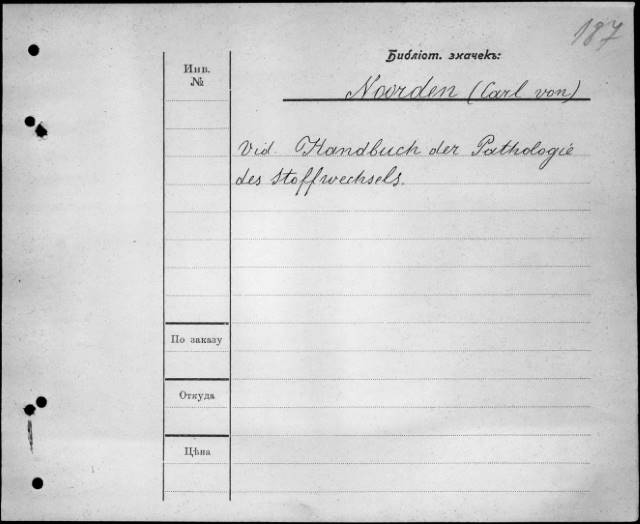 187
Библіот. значекъ:
Инв.
№
Noorden (Carl von)
Vid. Handbuch der Pathologie
des Stoffwechsels.
По заказу
Откуда
Цѣна